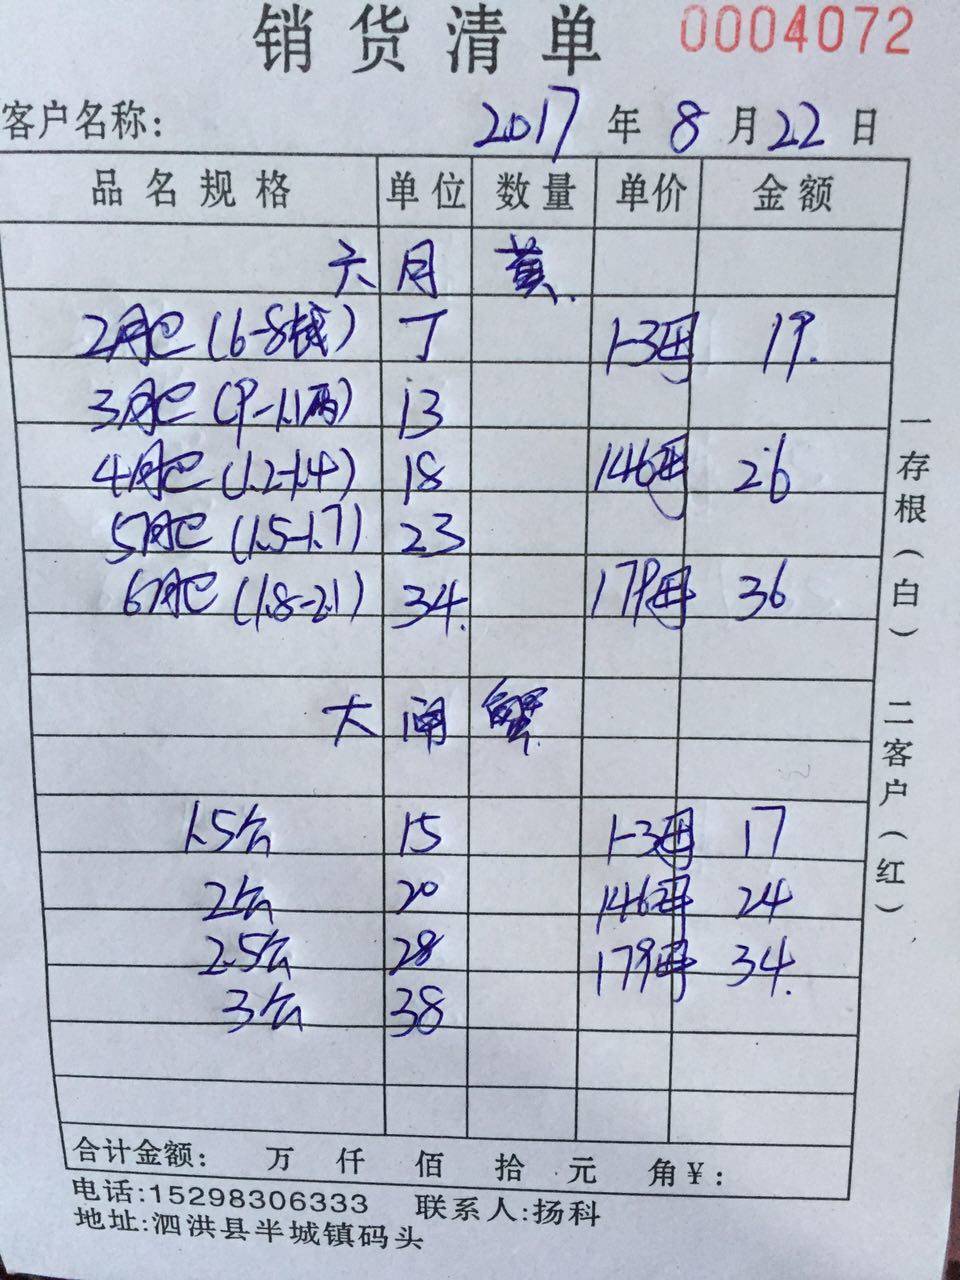 销货清单 0004072
客户名称: 2017 年 8 月 22 日
品名规格 单位 数量 单价 金额
六月黄
2月巴(6-8钱) 丁 1-3 19.
3月巴(9-1.1两) 13
4月巴(1.2-1.4) 18 146 26
5月巴(1.5-1.7) 23
6月巴(1.8-2.1) 34. 179 36
大闸蟹
1.5公 15 1-3 17
2公 20 146 24
2.5公 28 179 34.
3公 38
合计金额: 万 仟 佰 拾 元 角 ¥:
电话:15298306333 联系人:扬科
地址:泗洪县半城镇码头
一存根(白) 二客户(红)